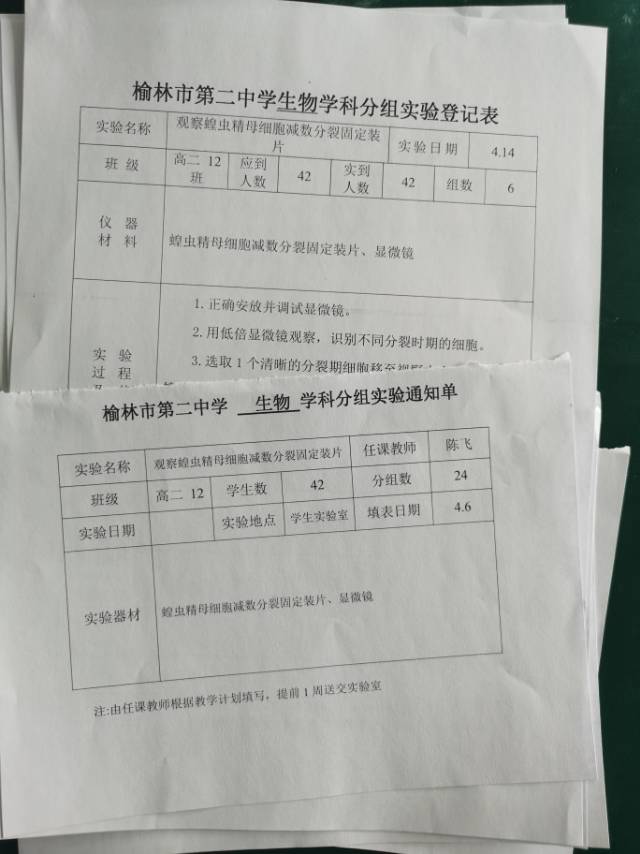 榆林市第二中学生物学科分组实验登记表
实验名称 观察蝗虫精母细胞减数分裂固定装片 实验日期 4.14
班 级 高二 12班 应到人数 42 实到人数 42 组数 6
仪 器 材 料 蝗虫精母细胞减数分裂固定装片、显微镜
实 验 过 程
1.正确安放并调试显微镜。
2.用低倍显微镜观察，识别不同分裂时期的细胞。
3.选取1个清晰的分裂期细胞移至视野
榆林市第二中学 生物 学科分组实验通知单
实验名称 观察蝗虫精母细胞减数分裂固定装片 任课教师 陈飞
班级 高二 12 学生数 42 分组数 24
实验日期 实验地点 学生实验室 填表日期 4.6
实验器材 蝗虫精母细胞减数分裂固定装片、显微镜
注:由任课教师根据教学计划填写，提前1周送交实验室